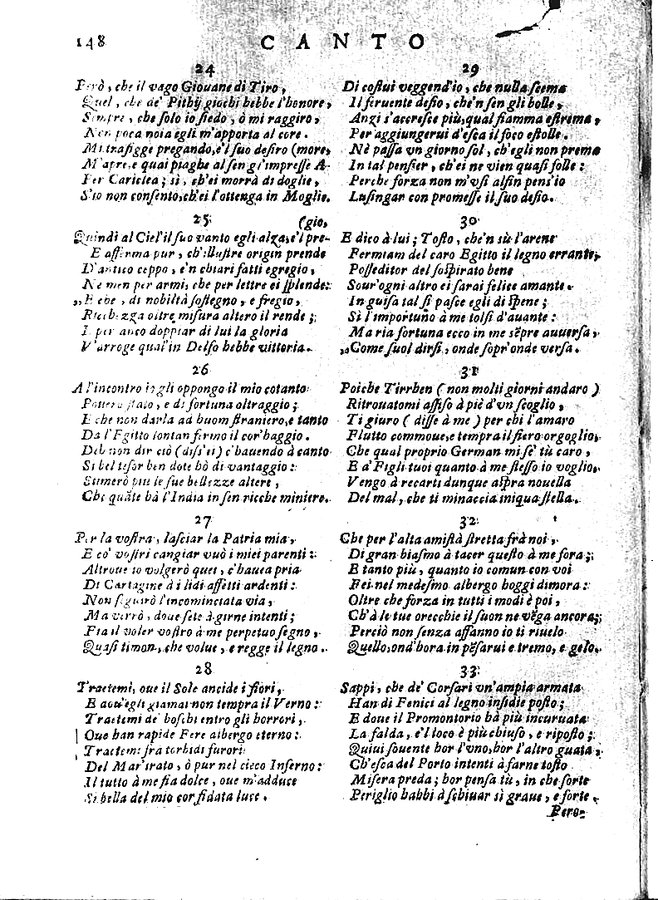 148
CANTO
24
Però, che il vago Giouane di Tiro,
Quel, che de' Pithij giochi hebbe l'honore,
Sempre, che solo io siedo, ò mi raggiro,
Non poca noia egli m'apporta al core.
Mi trafigge pregando, e'l suo desiro (more,
M'apre, e quai piaghe al sen gl'impresse A-
Per Cariclea; sì, ch'ei morrà di doglie,
S'io non consento, ch'ei l'ottenga in Moglie.
25
(gio,
Quindi al Ciel'il suo vanto egli alza, e'l pre-
E afferma pur, ch'illustre origin prende
D'antico ceppo, e'n chiari fatti egregio,
Ne men per armi, che per lettere ei splende:
„E che, di nobiltà sostegno, e fregio,
Ricchezza oltre misura altero il rende;
E per anco doppiar di lui la gloria
V'arroge quai'in Delfo hebbe vittoria.
26
A l'incontro io gli oppongo il mio cotanto
Pouero stato, e di fortuna oltraggio;
E che non darla ad huom straniero, e tanto
Da l'Egitto lontan fermo il cor'haggio.
Deh non dir ciò (diss'ei) c'hauendo à canto
Si bel tesor ben dote hò di vantaggio:
Stimerò più le sue bellezze altere,
Che quãte hà l'India in sen ricche miniere.
27
Per la vostra, lasciar la Patria mia,
E co' vostri cangiar vuò i miei parenti:
Altroue io volgerò quei, c'hauea pria
Di Cartagine à i lidi affetti ardenti:
Non seguirò l'incominciata via,
Ma verrò, doue sete à girne intenti;
Fia il voler vostro à me perpetuo segno,
Quasi timon, che volue, e regge il legno.
28
Traetemi, oue il Sole ancide i fiori,
E aou'egli giamai non tempra il Verno:
Traetemi de' boschi entro gli horrori,
Oue han rapide Fere albergo eterno:
Traetemi fra torbidi furori
Del Mar'irato, ò pur nel cieco Inferno:
Il tutto à me fia dolce, oue m'adduce
Si bella del mio cor fidata luce.
29
Di costui veggend'io, che nulla scema
Il feruente desio, che'n sen gli bolle,
Anzi s'accresce più, qual fiamma estrema,
Per aggiungerui d'esca il foco estolle.
Nè passa vn giorno sol, ch'egli non prema
In tal pensier, ch'ei ne vien quasi folle:
Perche forza non m'vsi alfin pens'io
Lusingar con promesse il suo desio.
30
E dico à lui; Tosto, che'n sù l'arene
Fermiam del caro Egitto il legno errante,
Posseditor del sospirato bene
Sour'ogni altro ei sarai felice amante.
In guisa tal si pasce egli di spene;
Sì l'importuno à me tolsi d'auante:
Ma ria fortuna ecco in me sẽpre auuersa,
„Come suol dirsi, onde sopr'onde versa.
31
Poiche Tirrhen (non molti giorni andaro)
Ritrouatomi assiso à piè d'vn scoglio,
Ti giuro (disse à me) per chi l'amaro
Flutto commoue, e tempra il fiero orgoglio,
Che qual proprio German mi se' tù caro,
E à Figli tuoi quanto à me stesso io voglio,
Vengo à recarti dunque aspra nouella
Del mal, che ti minaccia iniqua stella.
32
Che per l'alta amistà stretta frà noi,
Di gran biasmo à tacer questo à me fora;
E tanto più, quanto io comun con voi
Fei nel medesmo albergo hoggi dimora:
Oltre che forza in tutti i modi è poi,
Ch'à le tue orecchie il suon ne vẽga ancora;
Perciò non senza affanno io ti riuelo
Quello, ond'hora in pẽsarui e tremo, e gelo.
33
Sappi, che de' Corsari vn'ampia armata
Han di Fenici al legno insidie posto;
E doue il Promontorio hà più incuruata
La falda, e'l loco è più chiuso, e riposto;
Quiui souente hor l'vno, hor l'altro guata,
Ch'esca del Porto intenti à farne tosto
Misera preda; hor pensa tù, in che sorte
Periglio habbi à schiuar sì graue, e forte.
Pero-